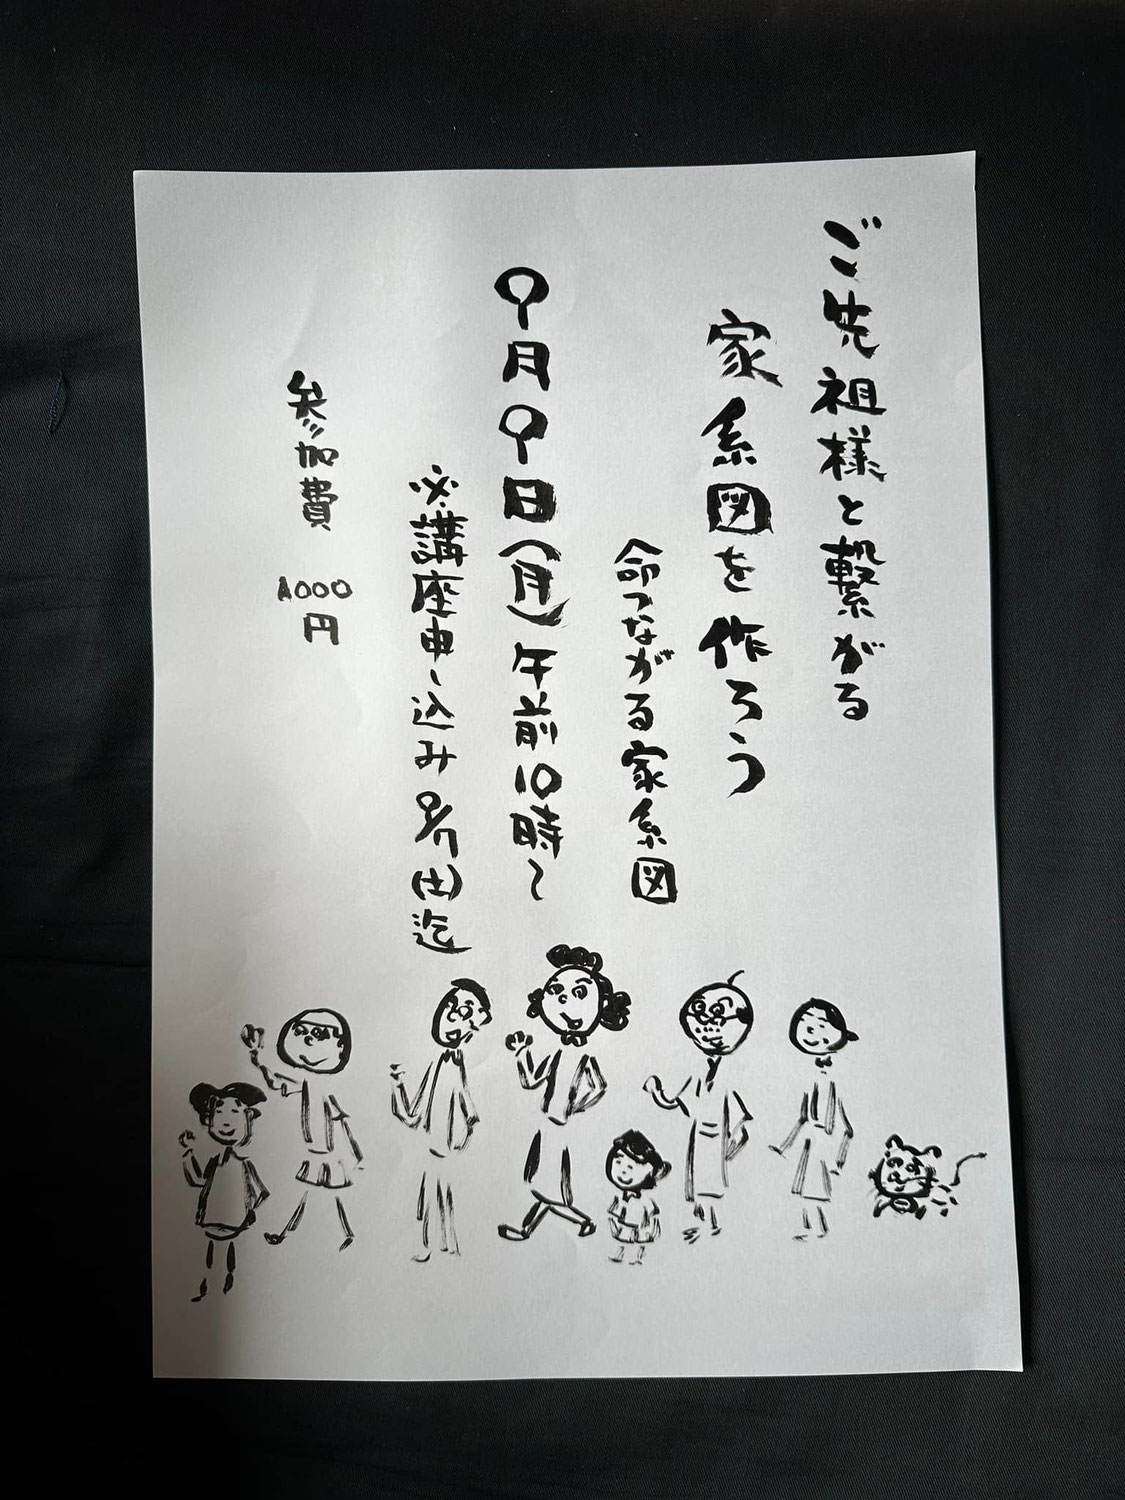 ご先祖様と繋がる
家系図を作ろう
命つながる家系図
9月9日(月)午前10時〜
※講座申し込み 9/7(土)迄
参加費 4000円